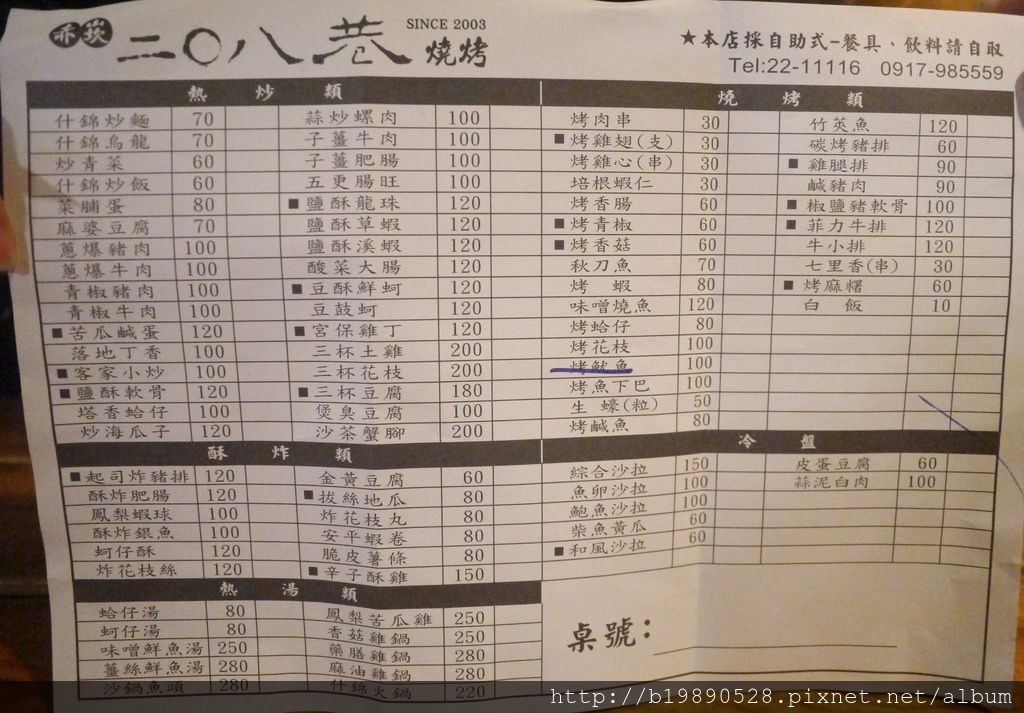 赤崁 二〇八巷 燒烤 SINCE 2003
★本店採自助式-餐具、飲料請自取
Tel:22-11116 0917-985559
熱炒類
什錦炒麵 70
什錦烏龍 70
炒青菜 60
什錦炒飯 60
菜脯蛋 80
麻婆豆腐 70
蔥爆豬肉 100
蔥爆牛肉 100
青椒豬肉 100
青椒牛肉 100
■苦瓜鹹蛋 120
落地丁香 100
■客家小炒 100
■鹽酥軟骨 120
塔香蛤仔 100
炒海瓜子 120
蒜炒螺肉 100
子薑牛肉 100
子薑肥腸 100
五更腸旺 100
■鹽酥龍珠 120
鹽酥草蝦 120
鹽酥溪蝦 120
酸菜大腸 120
■豆酥鮮蚵 120
豆鼓蚵 120
■宮保雞丁 120
三杯土雞 200
三杯花枝 200
■三杯豆腐 180
煲臭豆腐 100
沙茶蟹腳 200
燒烤類
烤肉串 30
■烤雞翅(支) 30
烤雞心(串) 30
培根蝦仁 30
烤香腸 60
■烤青椒 60
■烤香菇 60
秋刀魚 70
烤蝦 80
味噌燒魚 120
烤蛤仔 80
烤花枝 100
烤魷魚 100
烤魚下巴 100
生蠔(粒) 50
烤鹹魚 80
竹莢魚 120
碳烤豬排 60
■雞腿排 90
鹹豬肉 90
■椒鹽豬軟骨 100
■菲力牛排 120
牛小排 120
七里香(串) 30
■烤麻糬 60
白飯 10
酥炸類
■起司炸豬排 120
酥炸肥腸 120
鳳梨蝦球 100
酥炸銀魚 100
蚵仔酥 120
炸花枝絲 120
金黃豆腐 60
■拔絲地瓜 80
炸花枝丸 80
安平蝦卷 80
脆皮薯條 80
■辛子酥雞 150
冷盤
綜合沙拉 150
魚卵沙拉 100
鮑魚沙拉 100
柴魚黃瓜 60
■和風沙拉 60
皮蛋豆腐 60
蒜泥白肉 100
熱湯類
蛤仔湯 80
蚵仔湯 80
味噌鮮魚湯 250
薑絲鮮魚湯 280
沙鍋魚頭 280
鳳梨苦瓜雞 250
香菇雞鍋 250
藥膳雞鍋 280
麻油雞鍋 280
什錦火鍋 220
桌號：
http://b19890528.pixnet.net/album